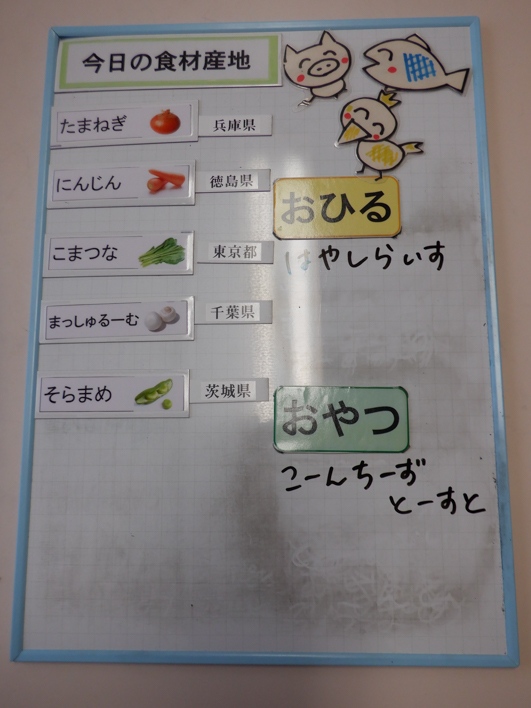 今日の食材産地
たまねぎ 兵庫県
にんじん 徳島県
こまつな 東京都
まっしゅるーむ 千葉県
そらまめ 茨城県
おひる
はやしらいす
おやつ
こーんちーず
とーすと